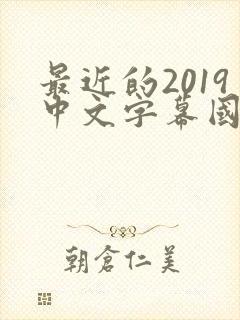 最近的2019
中文字幕國
朝倉仁美